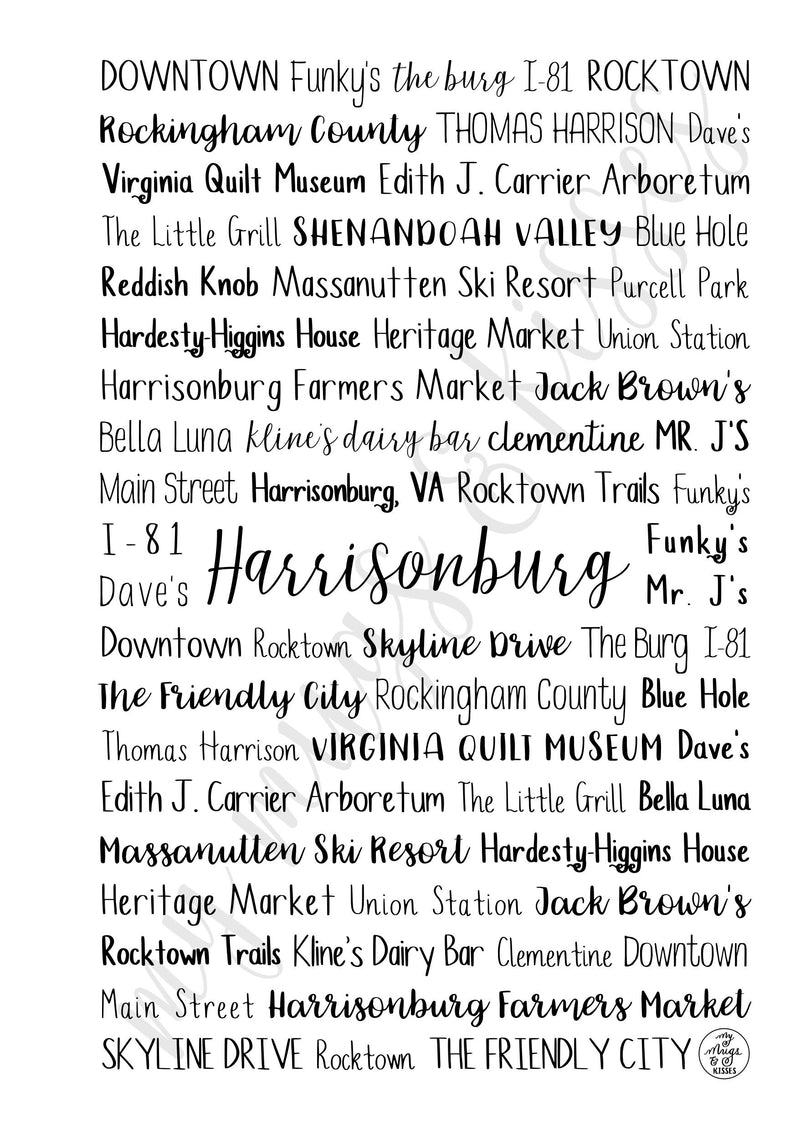 DOWNTOWN Funky's the burg I-81 ROCKTOWN
Rockingham County THOMAS HARRISON Dave's
Virginia Quilt Museum Edith J. Carrier Arboretum
The Little Grill SHENANDOAH VALLEY Blue Hole
Reddish Knob Massanutten Ski Resort Purcell Park
Hardesty-Higgins House Heritage Market Union Station
Harrisonburg Farmers Market Jack Brown's
Bella Luna kline's dairy bar clementine MR. J'S
Main Street Harrisonburg, VA Rocktown Trails Funky's
I-81 Harrisonburg Funky's
Dave's Mr. J's
Downtown Rocktown Skyline Drive The Burg I-81
The Friendly City Rockingham County Blue Hole
Thomas Harrison VIRGINIA QUILT MUSEUM Dave's
Edith J. Carrier Arboretum The Little Grill Bella Luna
Massanutten Ski Resort Hardesty-Higgins House
Heritage Market Union Station Jack Brown's
Rocktown Trails Kline's Dairy Bar Clementine Downtown
Main Street Harrisonburg Farmers Market
SKYLINE DRIVE Rocktown THE FRIENDLY CITY
my mugs & KISSES
my mugs & kisses